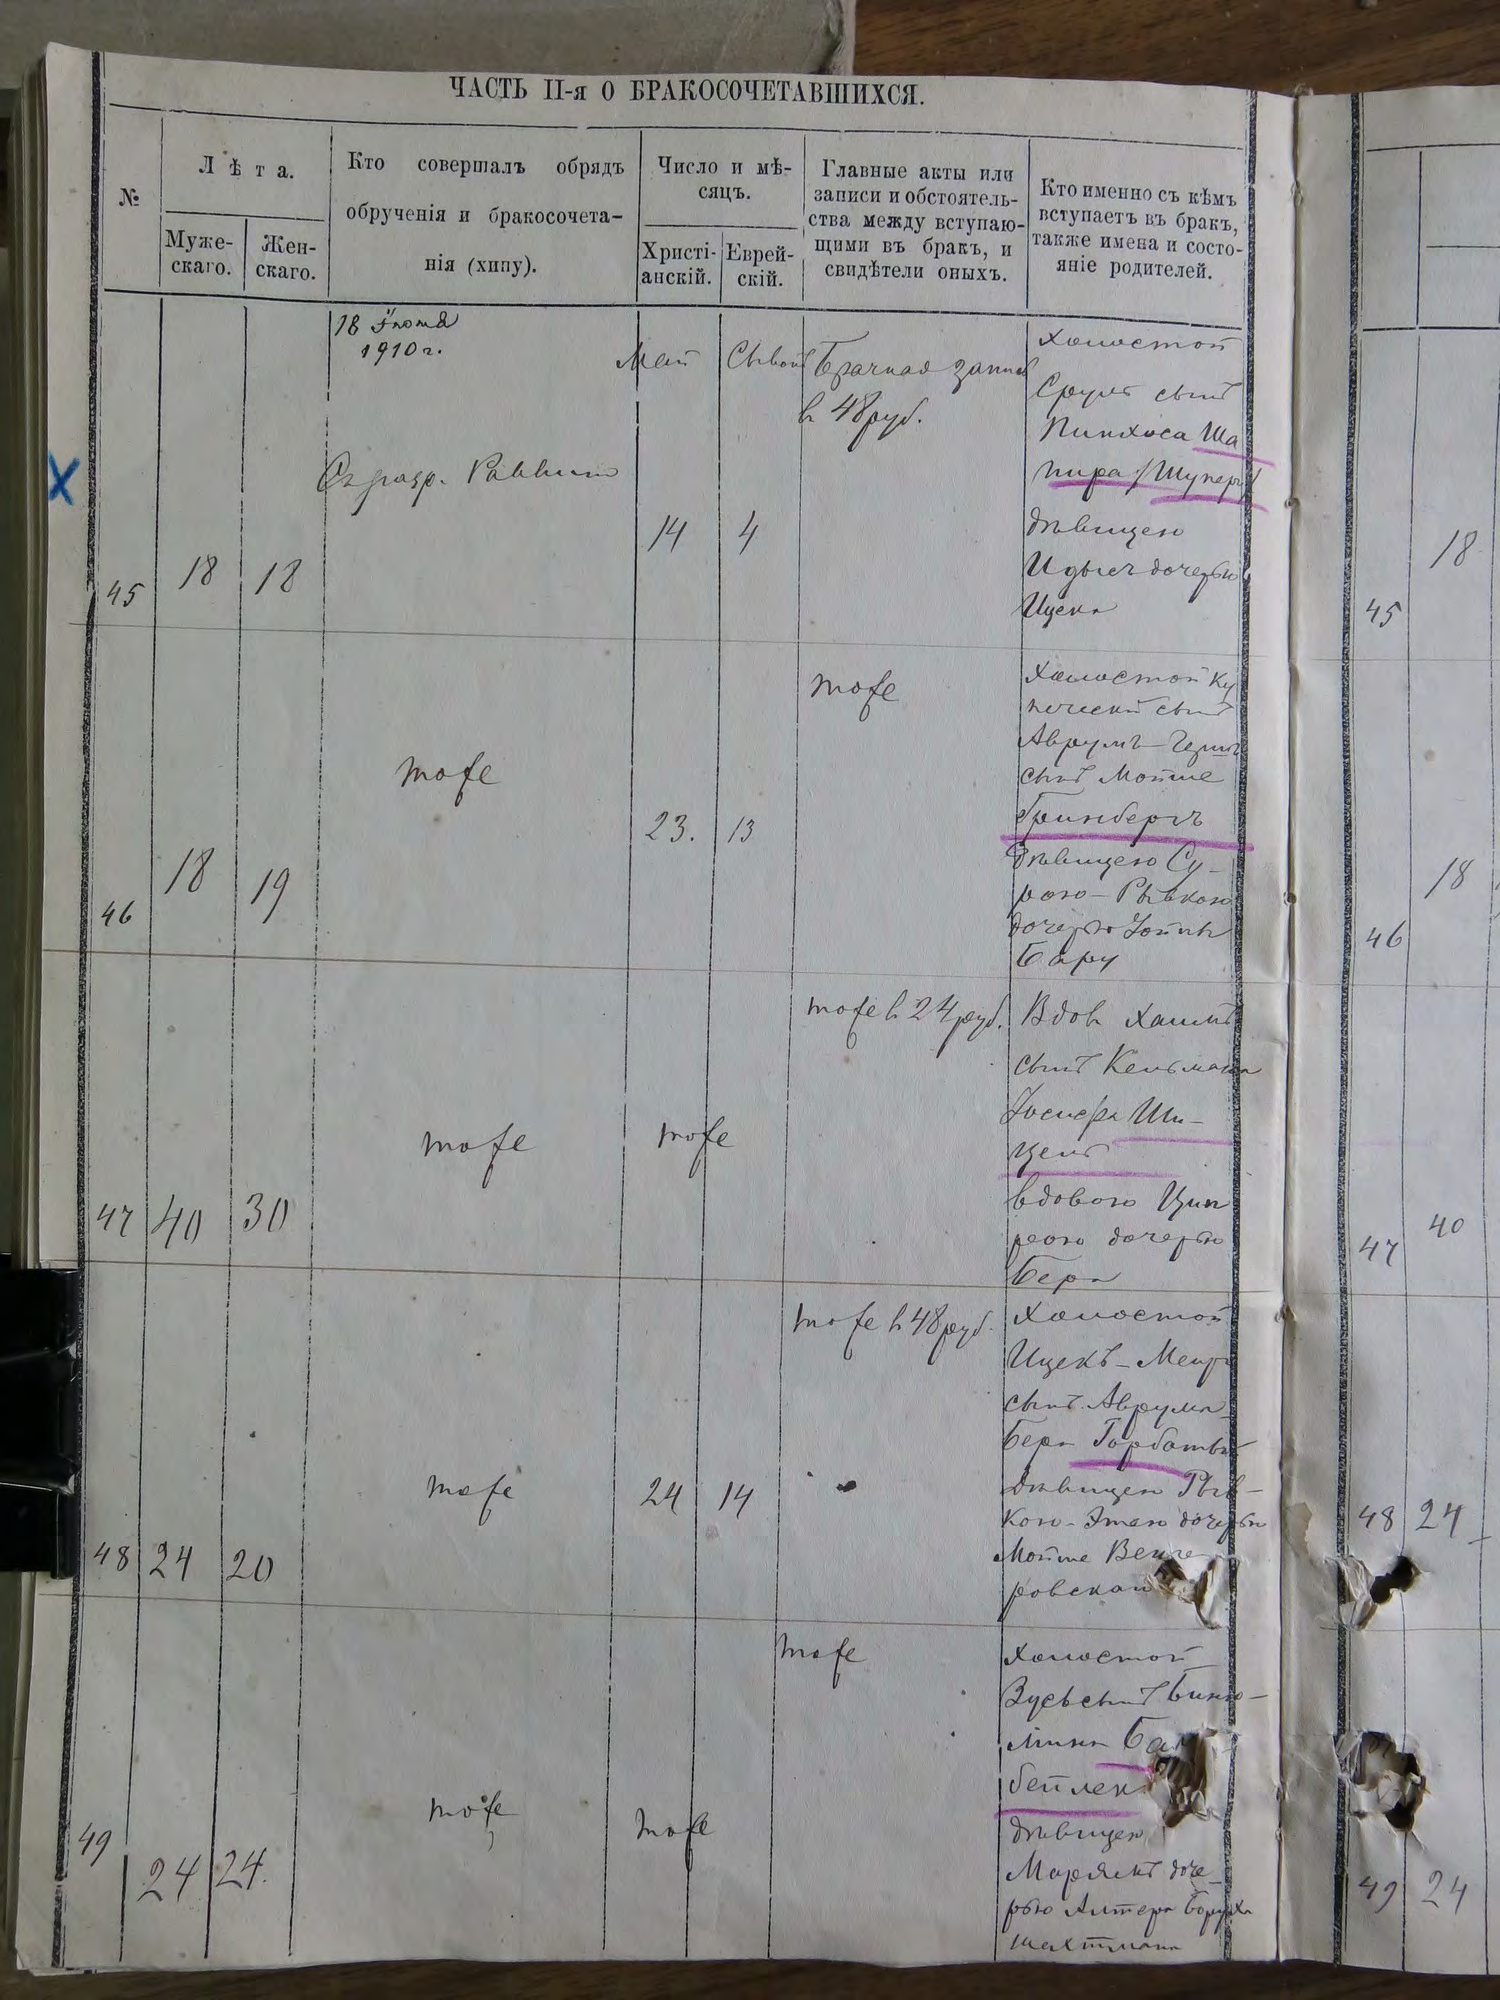 ЧАСТЬ II-я О БРАКОСОЧЕТАВШИХСЯ.
№
Лѣта.
Муже-
скаго.
Жен-
скаго.
Кто совершалъ обрядъ
обрученія и бракосочета-
нія (хипу).
Число и мѣ-
сяцъ.
Христі-
анскій.
Еврей-
скій.
Главные акты или
записи и обстоятель-
ства между вступаю-
щими въ бракъ, и
свидѣтели оныхъ.
Кто именно съ кѣмъ
вступаетъ въ бракъ,
также имена и состо-
яніе родителей.
45
18
18
18
1910 г.
Май
14
4
Брачная
в 48 руб.
Холостой
Сруль сынъ
Пинхоса Ша
пира
дѣвицею
дочерью
Ицека
46
18
19
тоже
23.
13
тоже
Холостой Ку
сынъ
Аврумъ-Герш
сынъ Мойше
Гринбергъ
дѣвицею Су-
рою-Рывкою
дочерью
Бару
47
40
30
тоже
тоже
тоже в 24 руб.
Вдов Хаимъ
сынъ Кельмана
Иосифа Ши-
цель
вдовою Цип
рою дочерью
Бера
48
24
20
тоже
24
14
тоже в 48 руб.
Холостой
Ицекъ-Меир
сынъ Аврума
Бера Горбатый
дѣвицею Рыв-
кою-Этею дочерью
Мойше Венге
ровская
49
24
24.
тоже
тоже
тоже
Холостой
Зусь сынъ Биню-
мина
дѣвицею
доче-
рью Алтера Боруха
Шехтмана
45
18
46
18
47
40
48
24
49
24